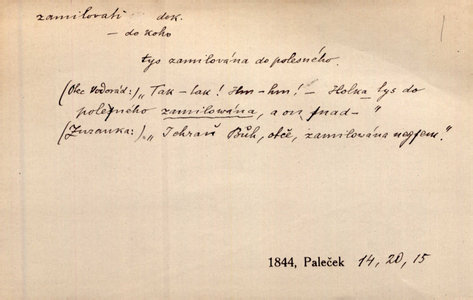 zamilovati dok.
– do koho
tys zamilována do polesného.
(Otec Vodorád:) „Tak – tak! Hm – hm! – Holka tys do
polesného zamilována, a on snad – "
(Zuzanka:) „Ichraň Bůh, otče, zamilována nejsem."
1844, Paleček 14, 20, 15